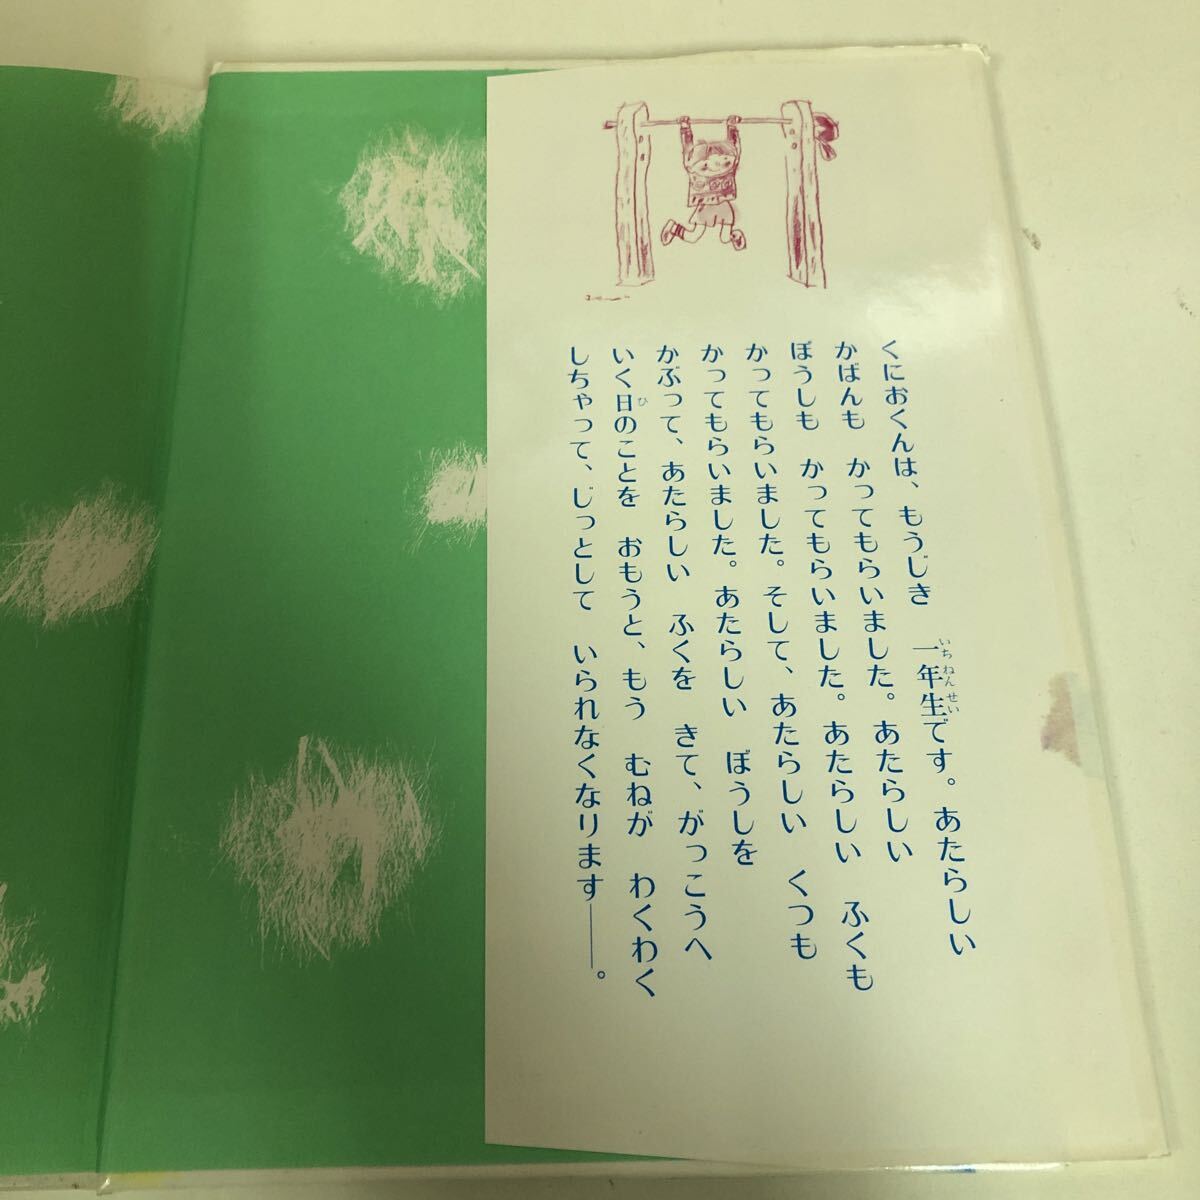 くにおくんは、もうじき　一年生です。あたらしい
かばんも　かってもらいました。あたらしい
ぼうしも　かってもらいました。あたらしい　ふくも
かってもらいました。そして、あたらしい　くつも
かってもらいました。あたらしい　ぼうしを
かぶって、あたらしい　ふくを　きて、がっこうへ
いく日のことを　おもうと、もう　むねが　わくわく
しちゃって、じっとして　いられなくなります──。